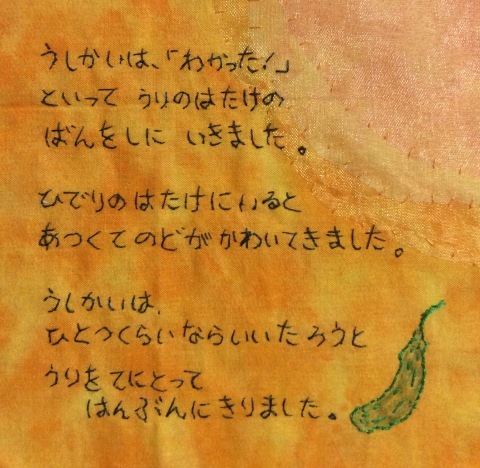 うしかいは、「わかった!」
といって うりのはたけの
ばんをしに いきました。
ひでりのはたけにいると
あつくてのどがかわいてきました。
うしかいは、
ひとつくらいならいいたろうと
うりをてにとって
はんぶんにきりました。